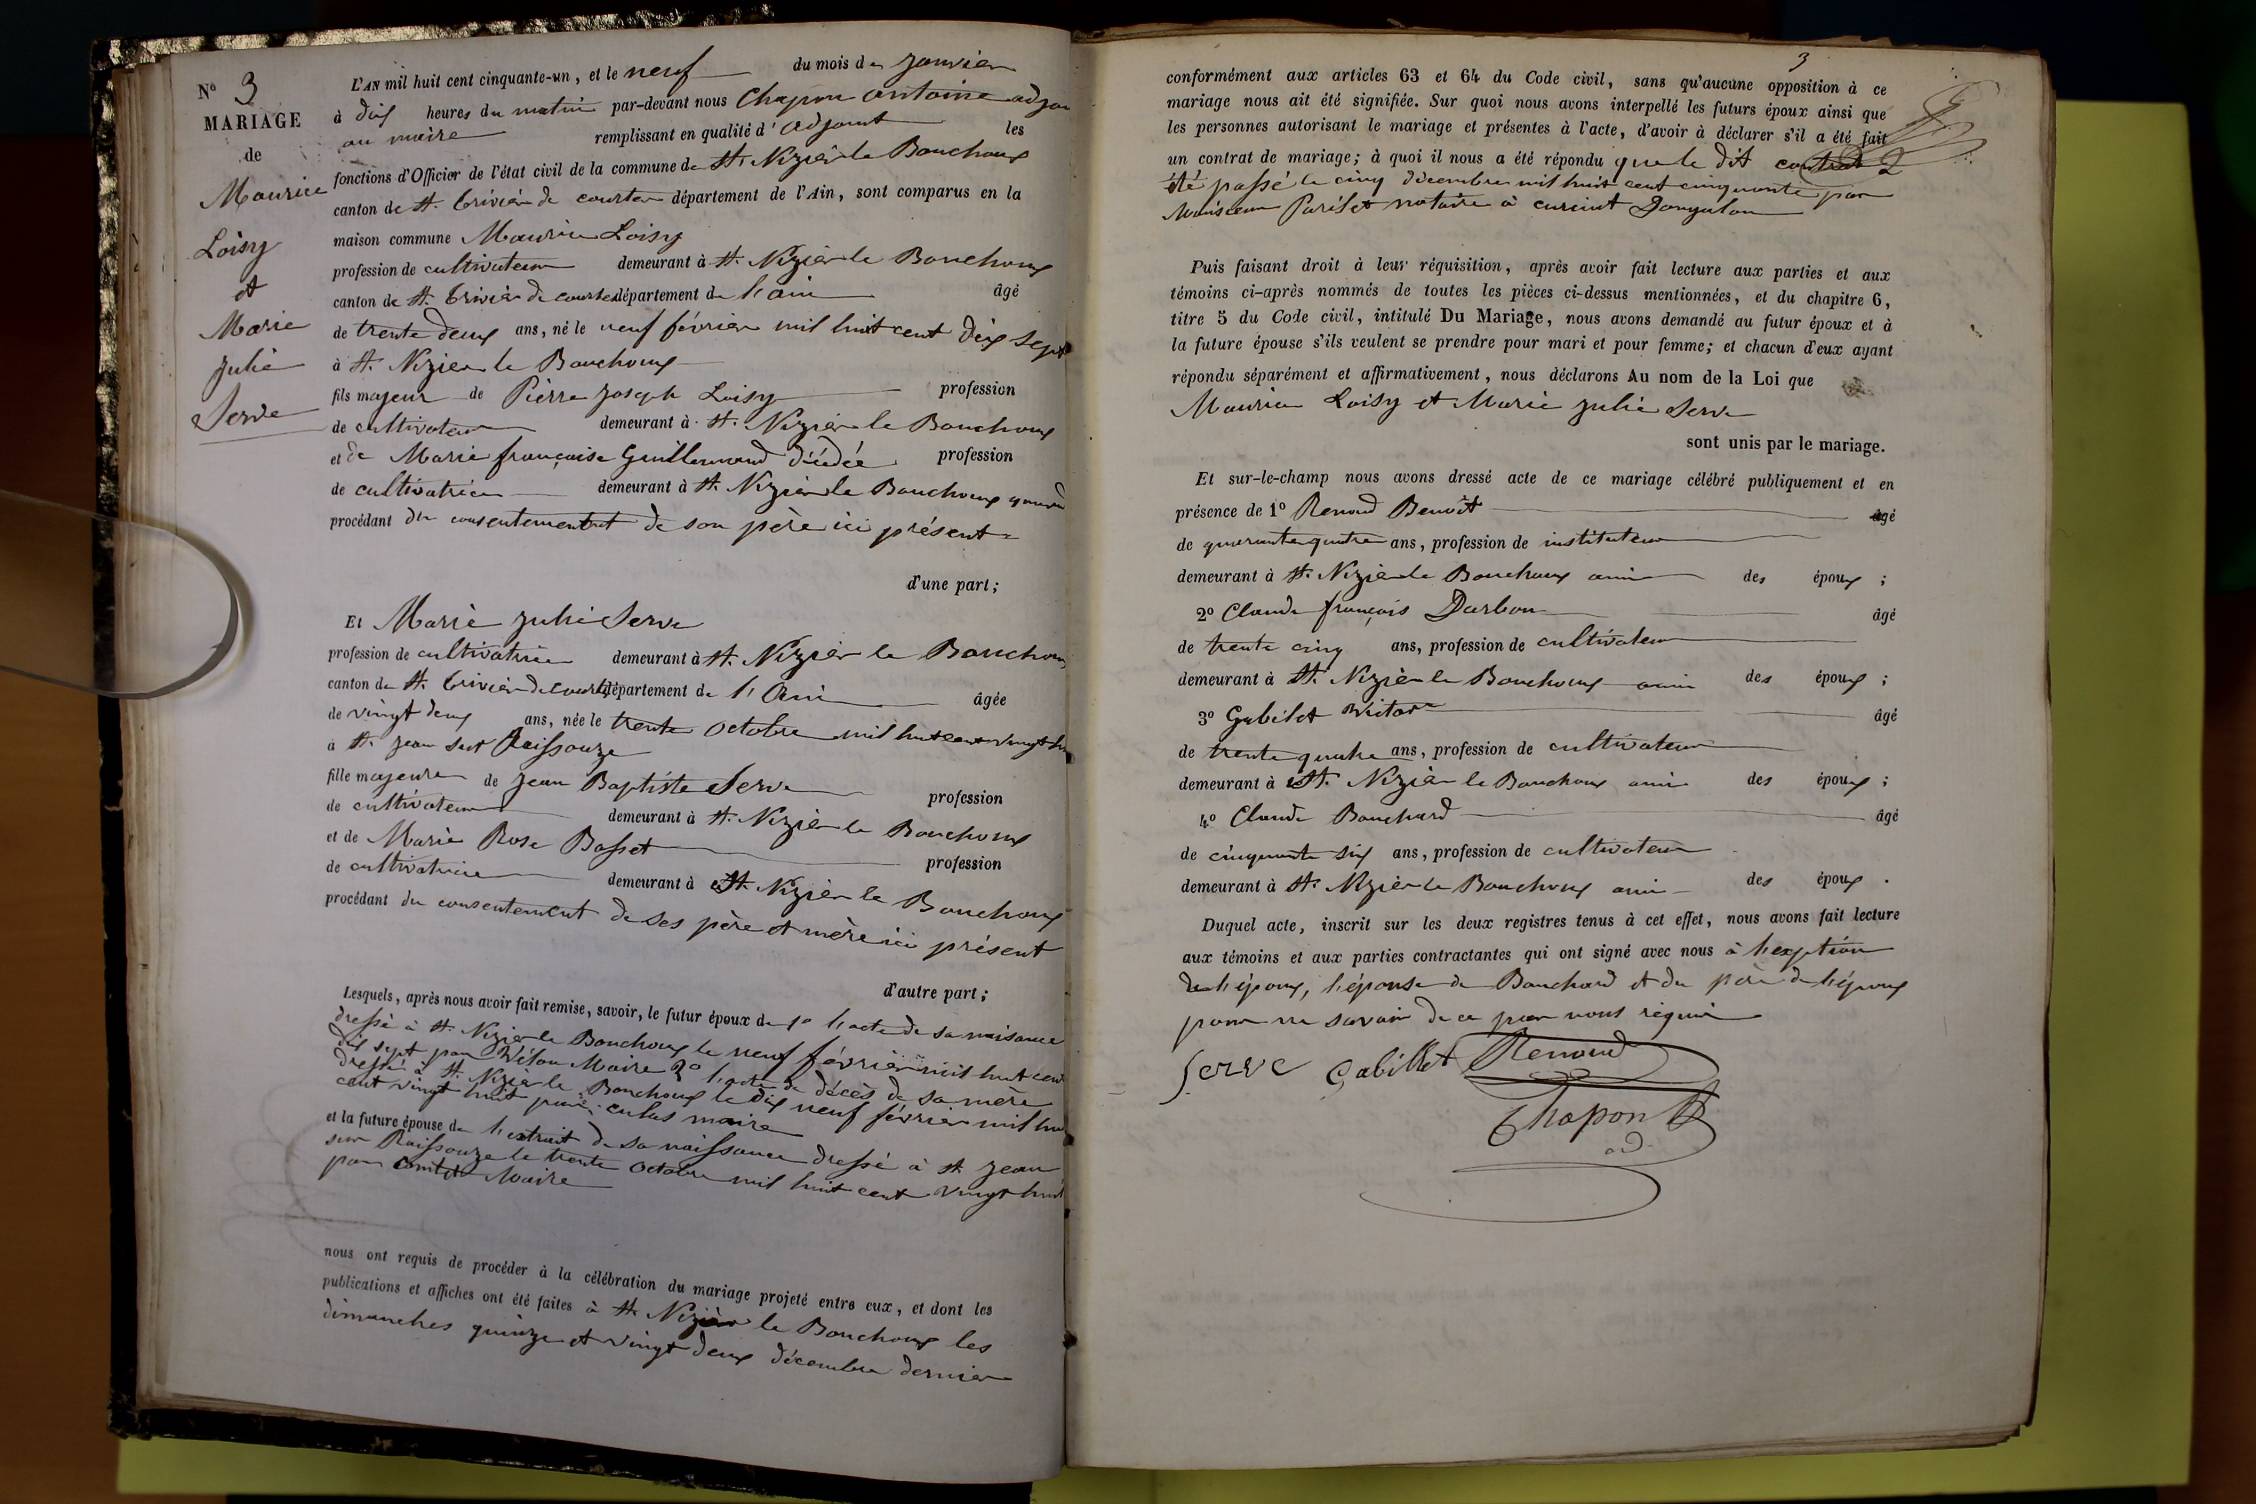 N° 3
MARIAGE
de
Maurice
Loisy
et
Marie
Julie
Serve
L'AN mil huit cent cinquante-un, et le neuf du mois de Janvier
à dix heures du matin par-devant nous Chapon antoine adjoint
au maire remplissant en qualité d'adjoint les
fonctions d'Officier de l'état civil de la commune de St. Nizier le Bouchoux
canton de St. Trivier de courtes département de l'Ain, sont comparus en la
maison commune Maurice Loisy
profession de cultivateur demeurant à St. Nizier le Bouchoux
canton de St. Trivier de courtes département de l'ain âgé
de trente deux ans, né le neuf février mil huit cent dix sept
à St. Nizier le Bouchoux
fils majeur de Pierre Joseph Loisy profession
de cultivateur demeurant à St. Nizier le Bouchoux
et de Marie françoise Guillermond décédée profession
de cultivatrice demeurant à St. Nizier le Bouchoux
procédant du consentement de son père ici présent
d'une part;
Et Marie Julie Serve
profession de cultivatrice demeurant à St. Nizier le Bouchoux
canton de St. Trivier de courtes département de l'Ain âgée
de vingt deux ans, née le trente octobre mil huit cent vingt huit
à St. Jean sur Reissouze
fille majeure de Jean Baptiste Serve profession
de cultivateur demeurant à St. Nizier le Bouchoux
et de Marie Rose Basset profession
de cultivatrice demeurant à St. Nizier le Bouchoux
procédant du consentement de ses père et mère ici présent
d'autre part;
Lesquels, après nous avoir fait remise, savoir, le futur époux de 1° l'acte de sa naissance
dressé à St. Nizier le Bouchoux le neuf février mil huit cent
dix sept par Maire 2° l'acte de décès de sa mère
dressé à St. Nizier le Bouchoux le dix neuf février mil huit
cent vingt huit par maire
et la future épouse de l'extrait de sa naissance dressé à St. Jean
sur Reissouze le trente octobre mil huit cent vingt huit
par Maire
nous ont requis de procéder à la célébration du mariage projeté entre eux, et dont les
publications et affiches ont été faites à St. Nizier le Bouchoux les
dimanches quinze et vingt deux décembre dernier
3
conformément aux articles 63 et 64 du Code civil, sans qu'aucune opposition à ce
mariage nous ait été signifiée. Sur quoi nous avons interpellé les futurs époux ainsi que
les personnes autorisant le mariage et présentes à l'acte, d'avoir à déclarer s'il a été fait
un contrat de mariage; à quoi il nous a été répondu que le dit contrat
été passé le cinq décembre mil huit cent cinquante par
Monsieur notaire à
Puis faisant droit à leur réquisition, après avoir fait lecture aux parties et aux
témoins ci-après nommés de toutes les pièces ci-dessus mentionnées, et du chapitre 6,
titre 5 du Code civil, intitulé Du Mariage, nous avons demandé au futur époux et à
la future épouse s'ils veulent se prendre pour mari et pour femme; et chacun d'eux ayant
répondu séparément et affirmativement, nous déclarons Au nom de la Loi que
Maurice Loisy et Marie Julie Serve
sont unis par le mariage.
Et sur-le-champ nous avons dressé acte de ce mariage célébré publiquement et en
présence de 1° Renoud Benoît âgé
de quarante quatre ans, profession de instituteur
demeurant à St. Nizier le Bouchoux ami des époux;
2° Claude françois Darbon âgé
de trente cinq ans, profession de cultivateur
demeurant à St. Nizier le Bouchoux ami des époux;
3° Gabilet Victor âgé
de trente quatre ans, profession de cultivateur
demeurant à St. Nizier le Bouchoux ami des époux;
4° Claude Bouchard âgé
de cinquante six ans, profession de cultivateur
demeurant à St. Nizier le Bouchoux ami des époux.
Duquel acte, inscrit sur les deux registres tenus à cet effet, nous avons fait lecture
aux témoins et aux parties contractantes qui ont signé avec nous à l'exption
de l'époux, l'épouse de Bouchard et du père de l'époux
pour ne savoir de ce par nous requis
Serve Gabillet Renoud
Chapon
ad.